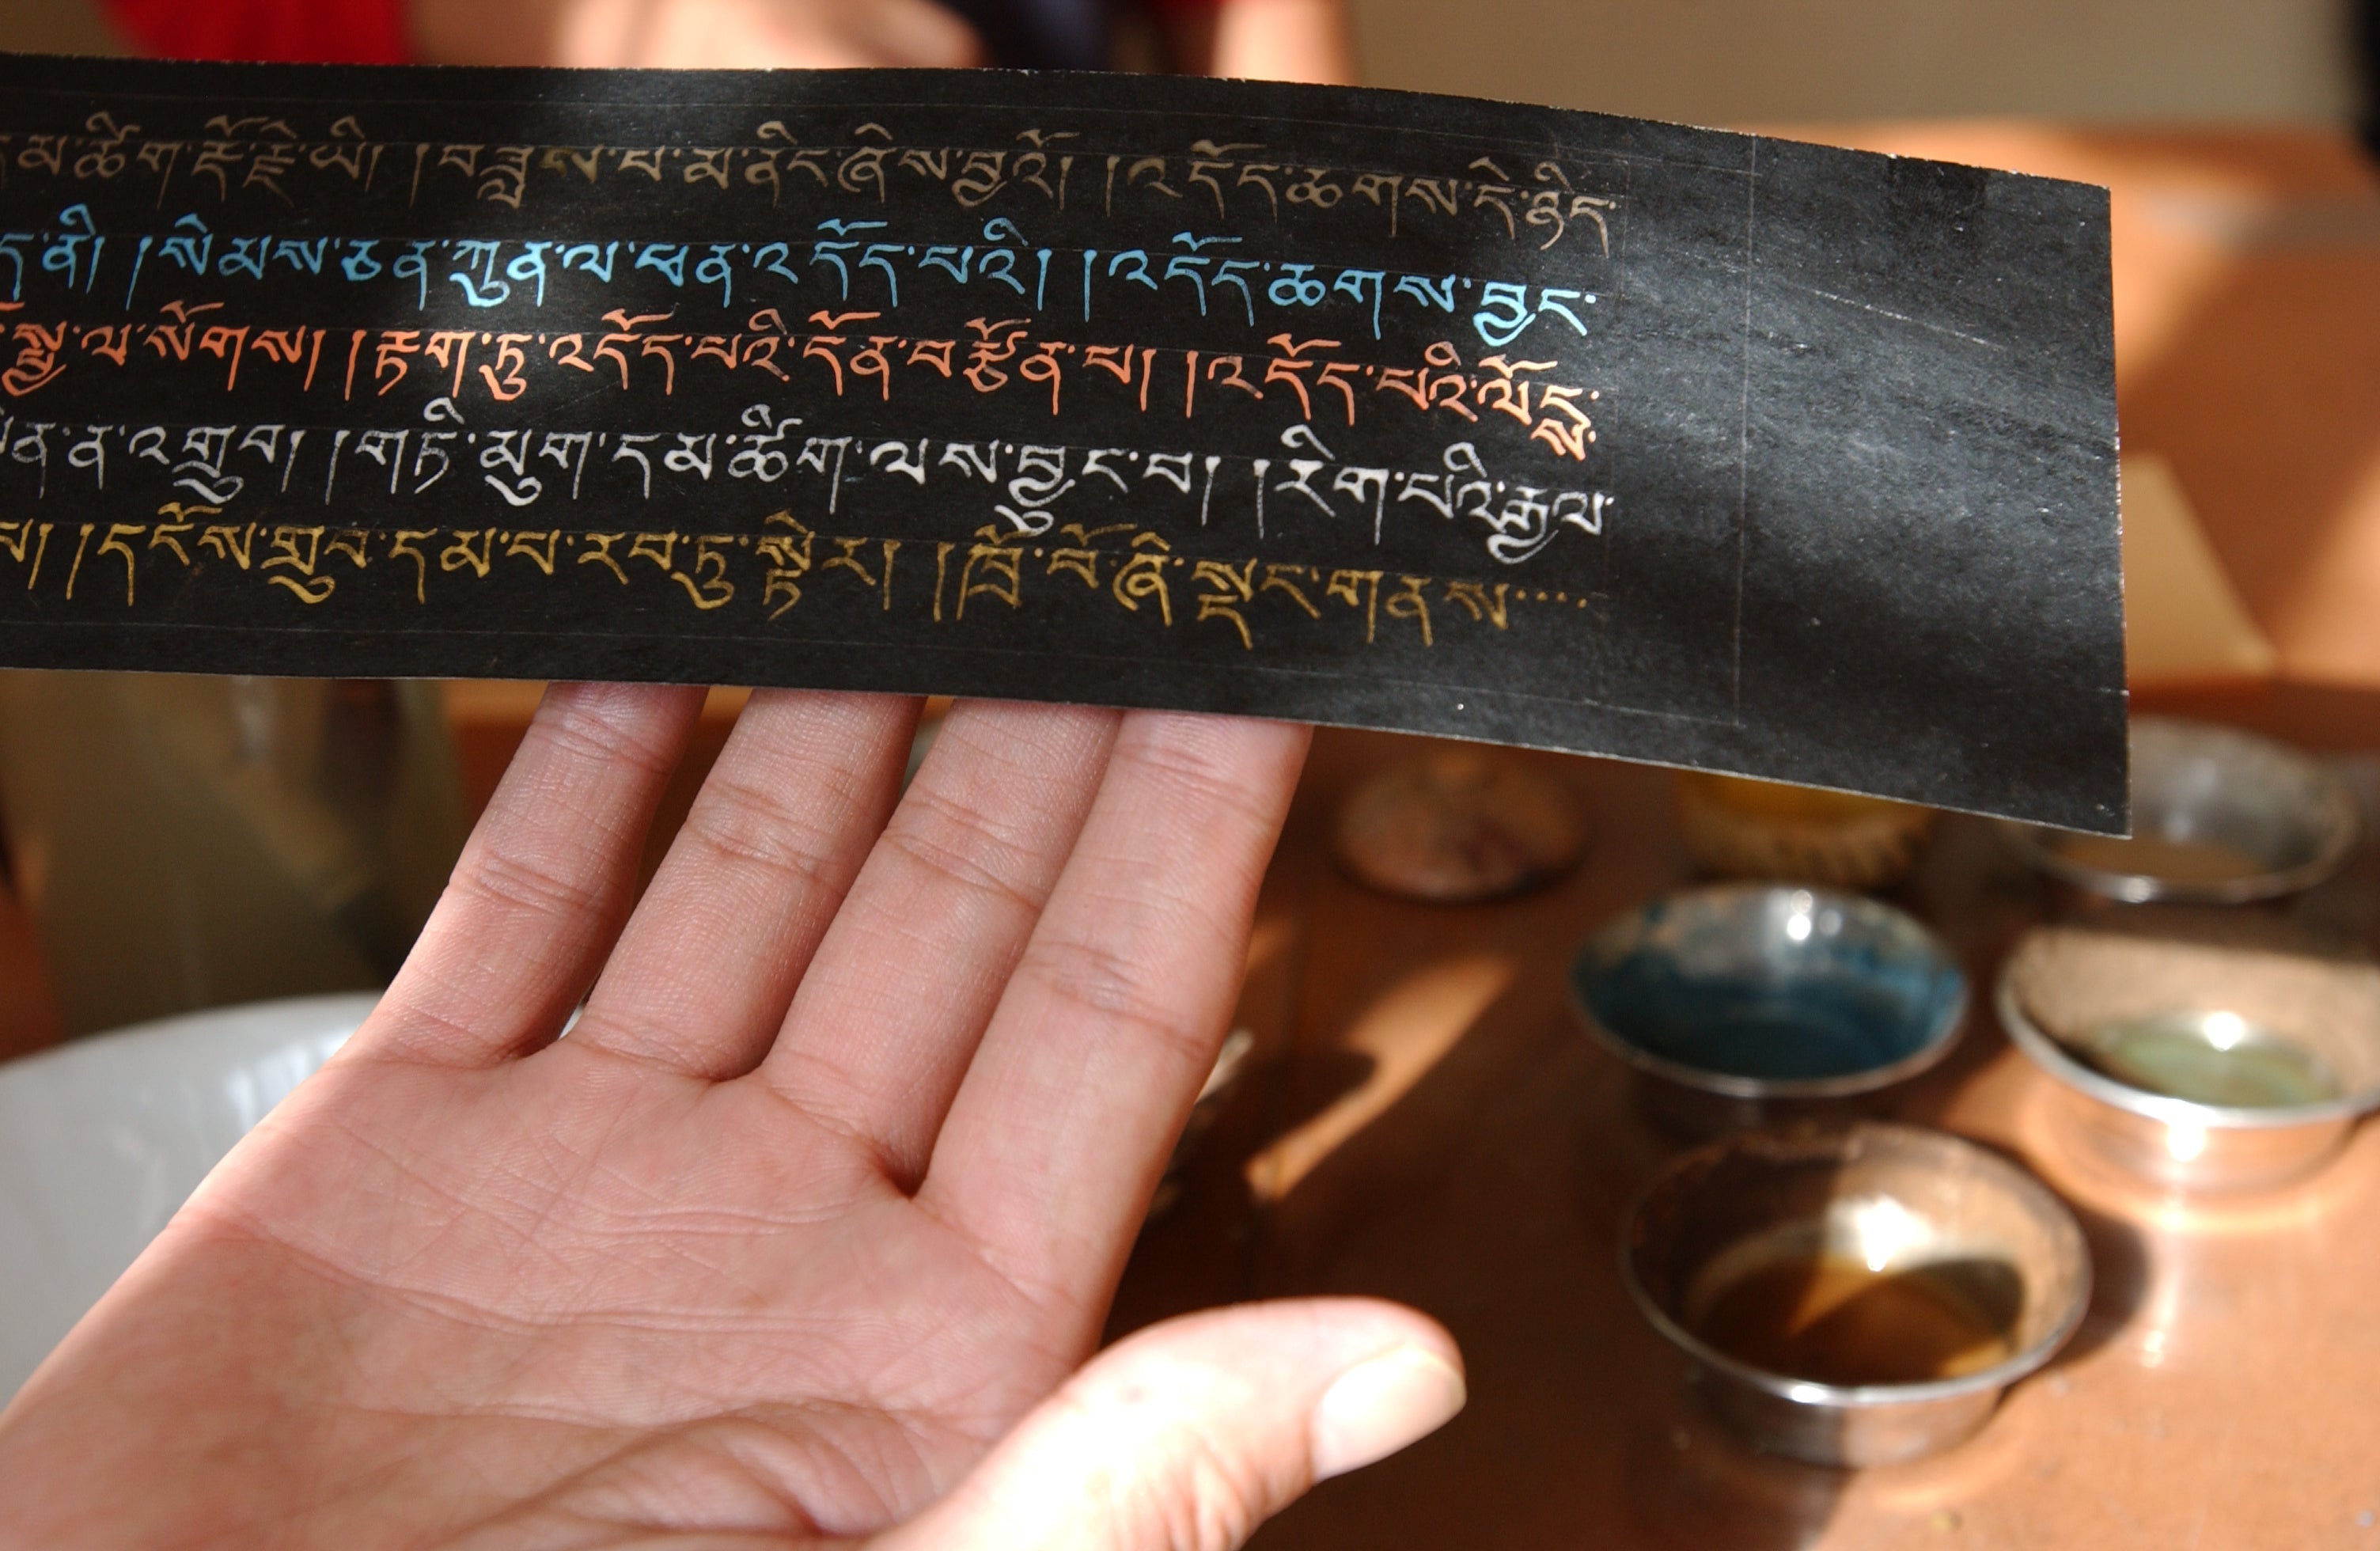 མ་ཚིག་རྡོ་རྗེ་ཡི། །བཟླས་པ་མ་ནིང་ཞེས་བྱའོ། །འདོད་ཆགས་དེ་ཉིད་
ད་ནི། །སེམས་ཅན་ཀུན་ལ་ཕན་འདོད་པའི། །འདོད་ཆགས་བྱང་
ལ་སོགས། །རྟག་ཏུ་འདོད་པའི་དོན་བརྩོན་པ། །འདོད་པའི་ལོངས་
ན་འགྲུབ། །གཏི་མུག་དམ་ཚིག་ལས་བྱུང་བ། །རིག་པའི་རྒྱལ་
།དངོས་གྲུབ་དམ་པ་རབ་ཏུ་སྟེར། །ཁྲོ་བོ་ཞི་སྡང་གནས་····